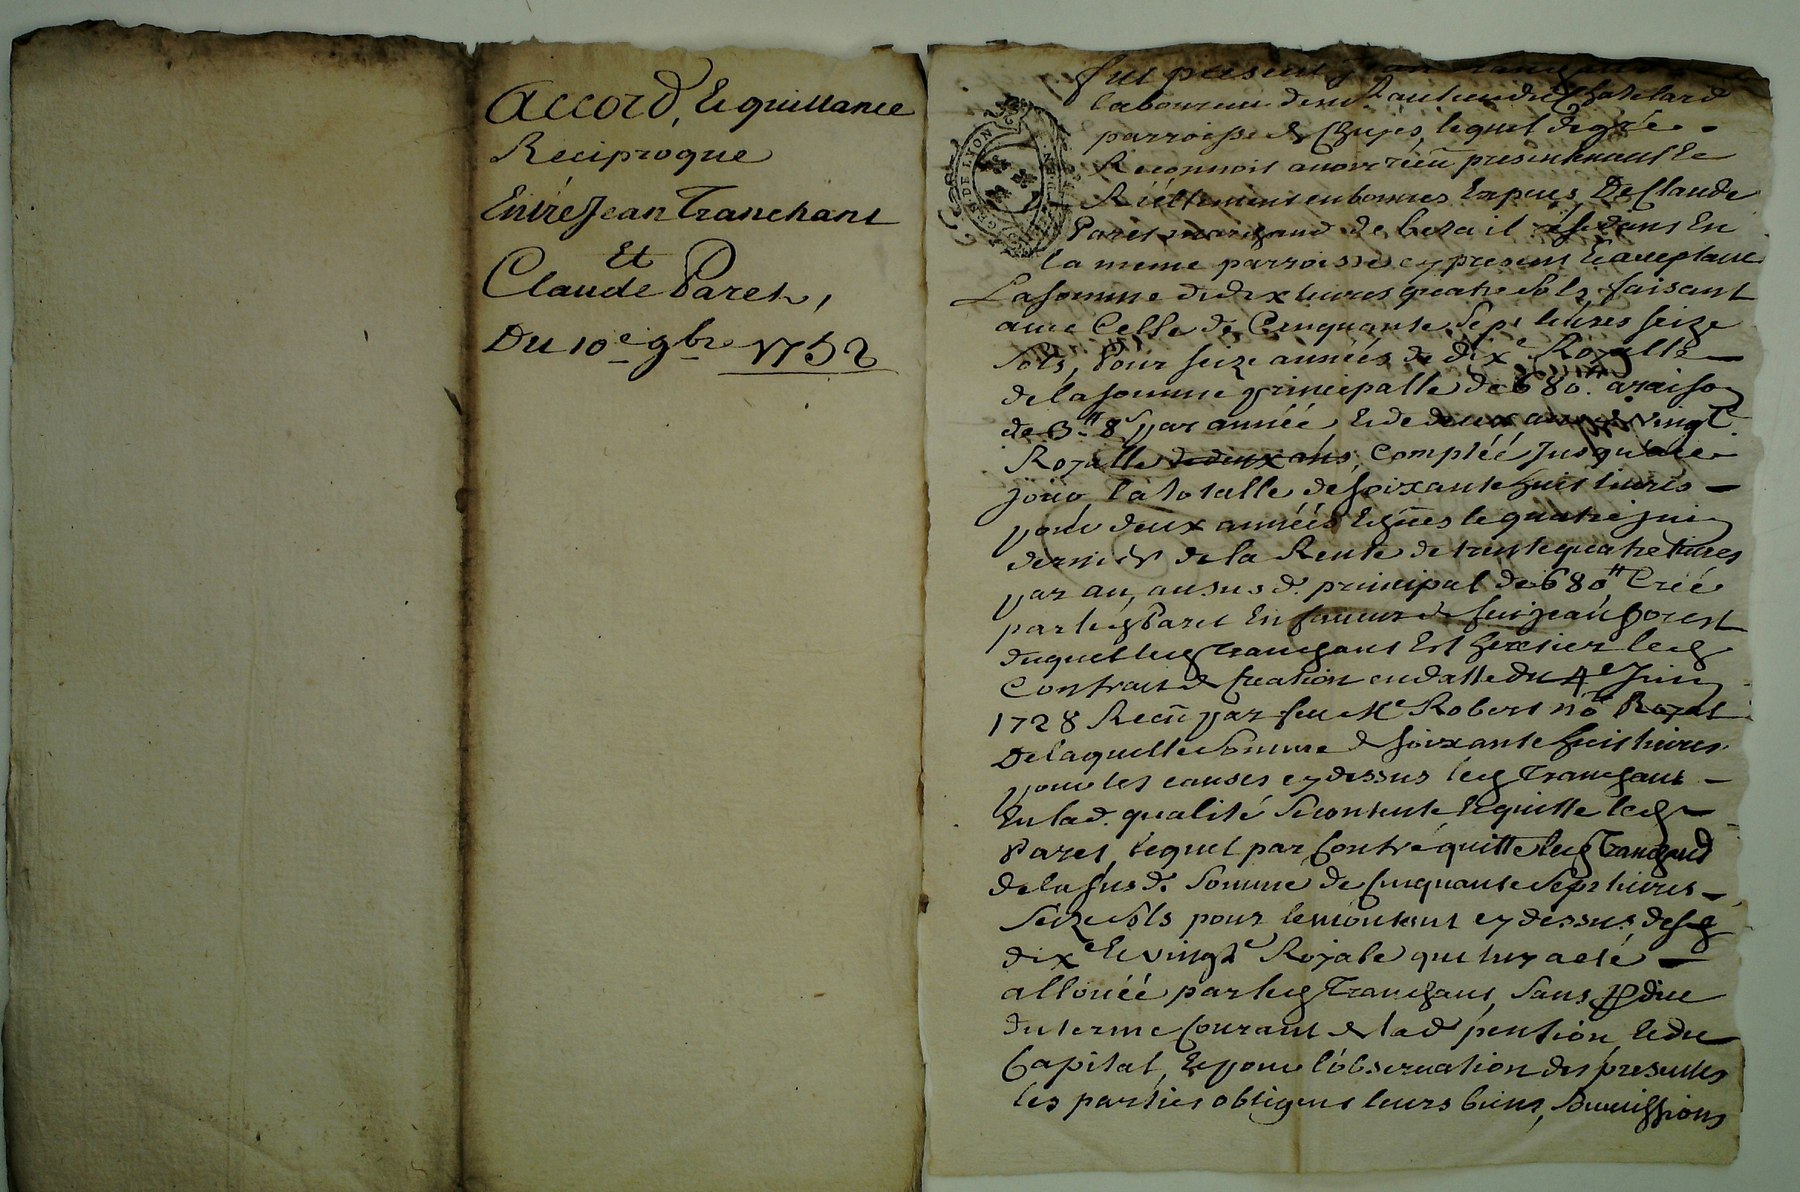 Accord, Et quittance
Reciproque
Entre Jean Tranchant
Et
Claude Paret,
Du 10e 9bre 1752
fut present Jean
laboureur au lieu du Chatelard
parroisse de lequel de gré
Reconnoit avoir recu presentement Et
Réellement en bonnes Especes De Claude
Paret marchand de betail résidant En
la meme parroisse cy present Et acceptant
La somme de dix livres quatre sols, faisant
avec Celle de Cinquante Sept livres seize
sols, Pour seize années de dixe Royalle
de la somme principalle de 680.tt a raison
de 3tt 8s par année Et de deux ans de vingte
Royalle de deux ans, Complété Jusqu'a ce
jour la totalle de soixante huit livres
pour deux années Echues le quatre juin
dernier de la Rente de trente quatre livres
par an, au susd. principal de 680tt Créé
par led Paret En faveur de feu jean forest
duquel led Tranchant Est heretier led
Contrat de Creation en datte du 4e Juin
1728 Recu par feu Me Robert no.re Royal
De laquelle Somme de soixante huit livres
pour les causes cy dessus led Tranchant
En lad. qualité Se contente Et quitte led
Paret, lequel par Contre quitte led Tranchant
de la susd. Somme de Cinquante Sept livres
Seize sols pour le montant cy dessus desd
dixe Et vingte Royale qui luy a eté
allouée par led Tranchant, Sans prdice
du terme Courant de lad pention, Et du
Capital, Et pour l'observation des presentes
les parties obligent leurs biens, Soumissions